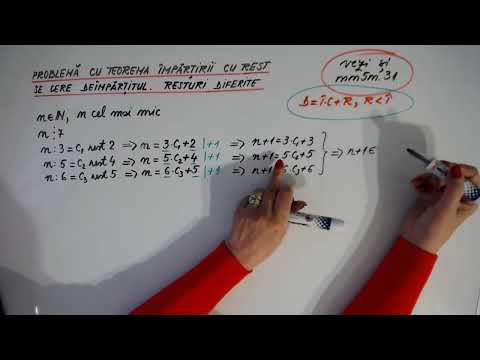 PROBLEMĂ CU TEOREMA ÎMPĂRȚIRII CU REST
SE CERE DEÎMPĂRȚITUL. RESTURI DIFERITE
vezi și
mm5m. 31
D=Î·C+R, R<Î
n∈ℕ, n cel mai mic
n⋮7
n:3=C₁ rest 2 ⟹ n=3·C₁+2 |+1 ⟹ n+1=3·C₁+3
n:5=C₂ rest 4 ⟹ n=5·C₂+4 |+1 ⟹ n+1=5·C₂+5 ⟹ n+1∈
n:6=C₃ rest 5 ⟹ n=6·C₃+5 |+1 ⟹ n+1 ·C₃+6